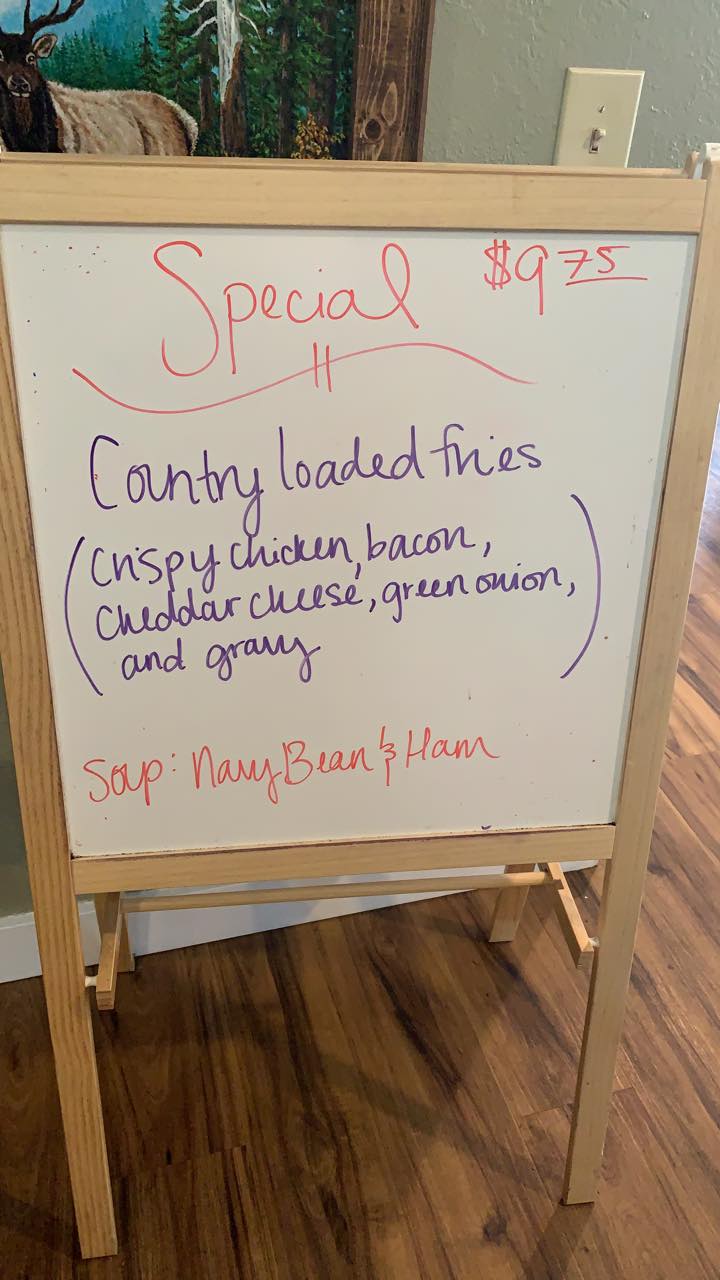 Special $9.75
Country loaded fries
(crispy chicken, bacon,
cheddar cheese, green onion,
and gravy)
Soup: Navy Bean & Ham